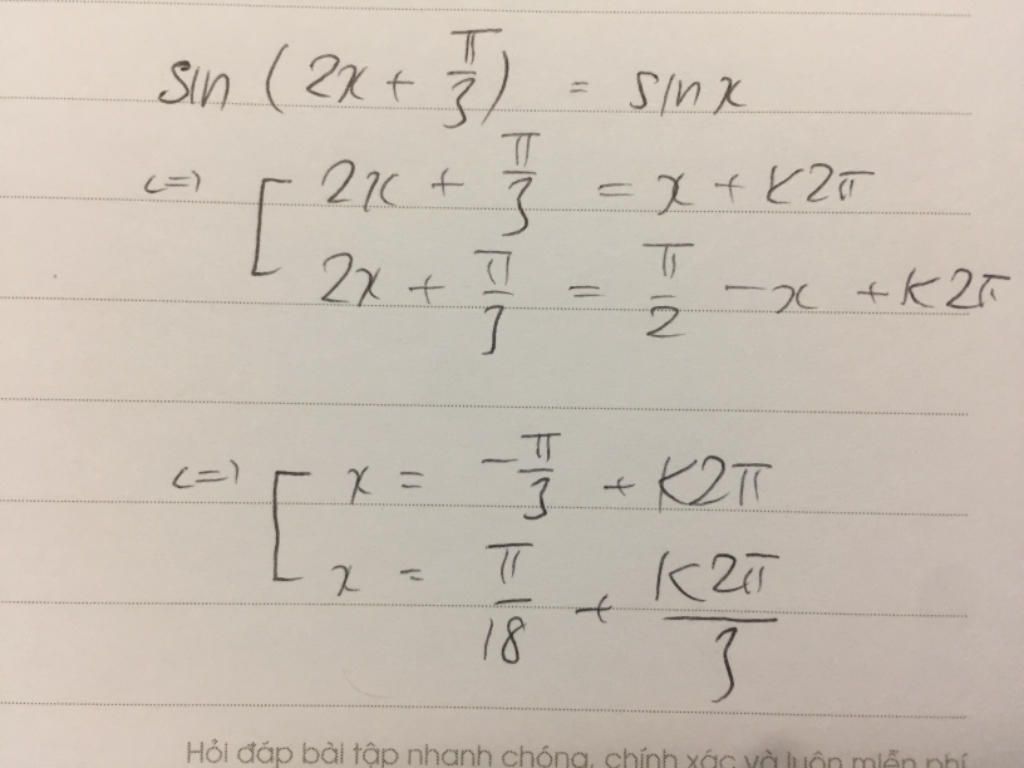 sin (2x + π/3) = sin x
<=> [ 2x + π/3 = x + k2π
2x + π/3 = π/2 - x + k2π
<=> [ x = -π/3 + k2π
x = π/18 + k2π/3
Hỏi đáp bài tập nhanh chóng, chính xác và luôn miễn phí